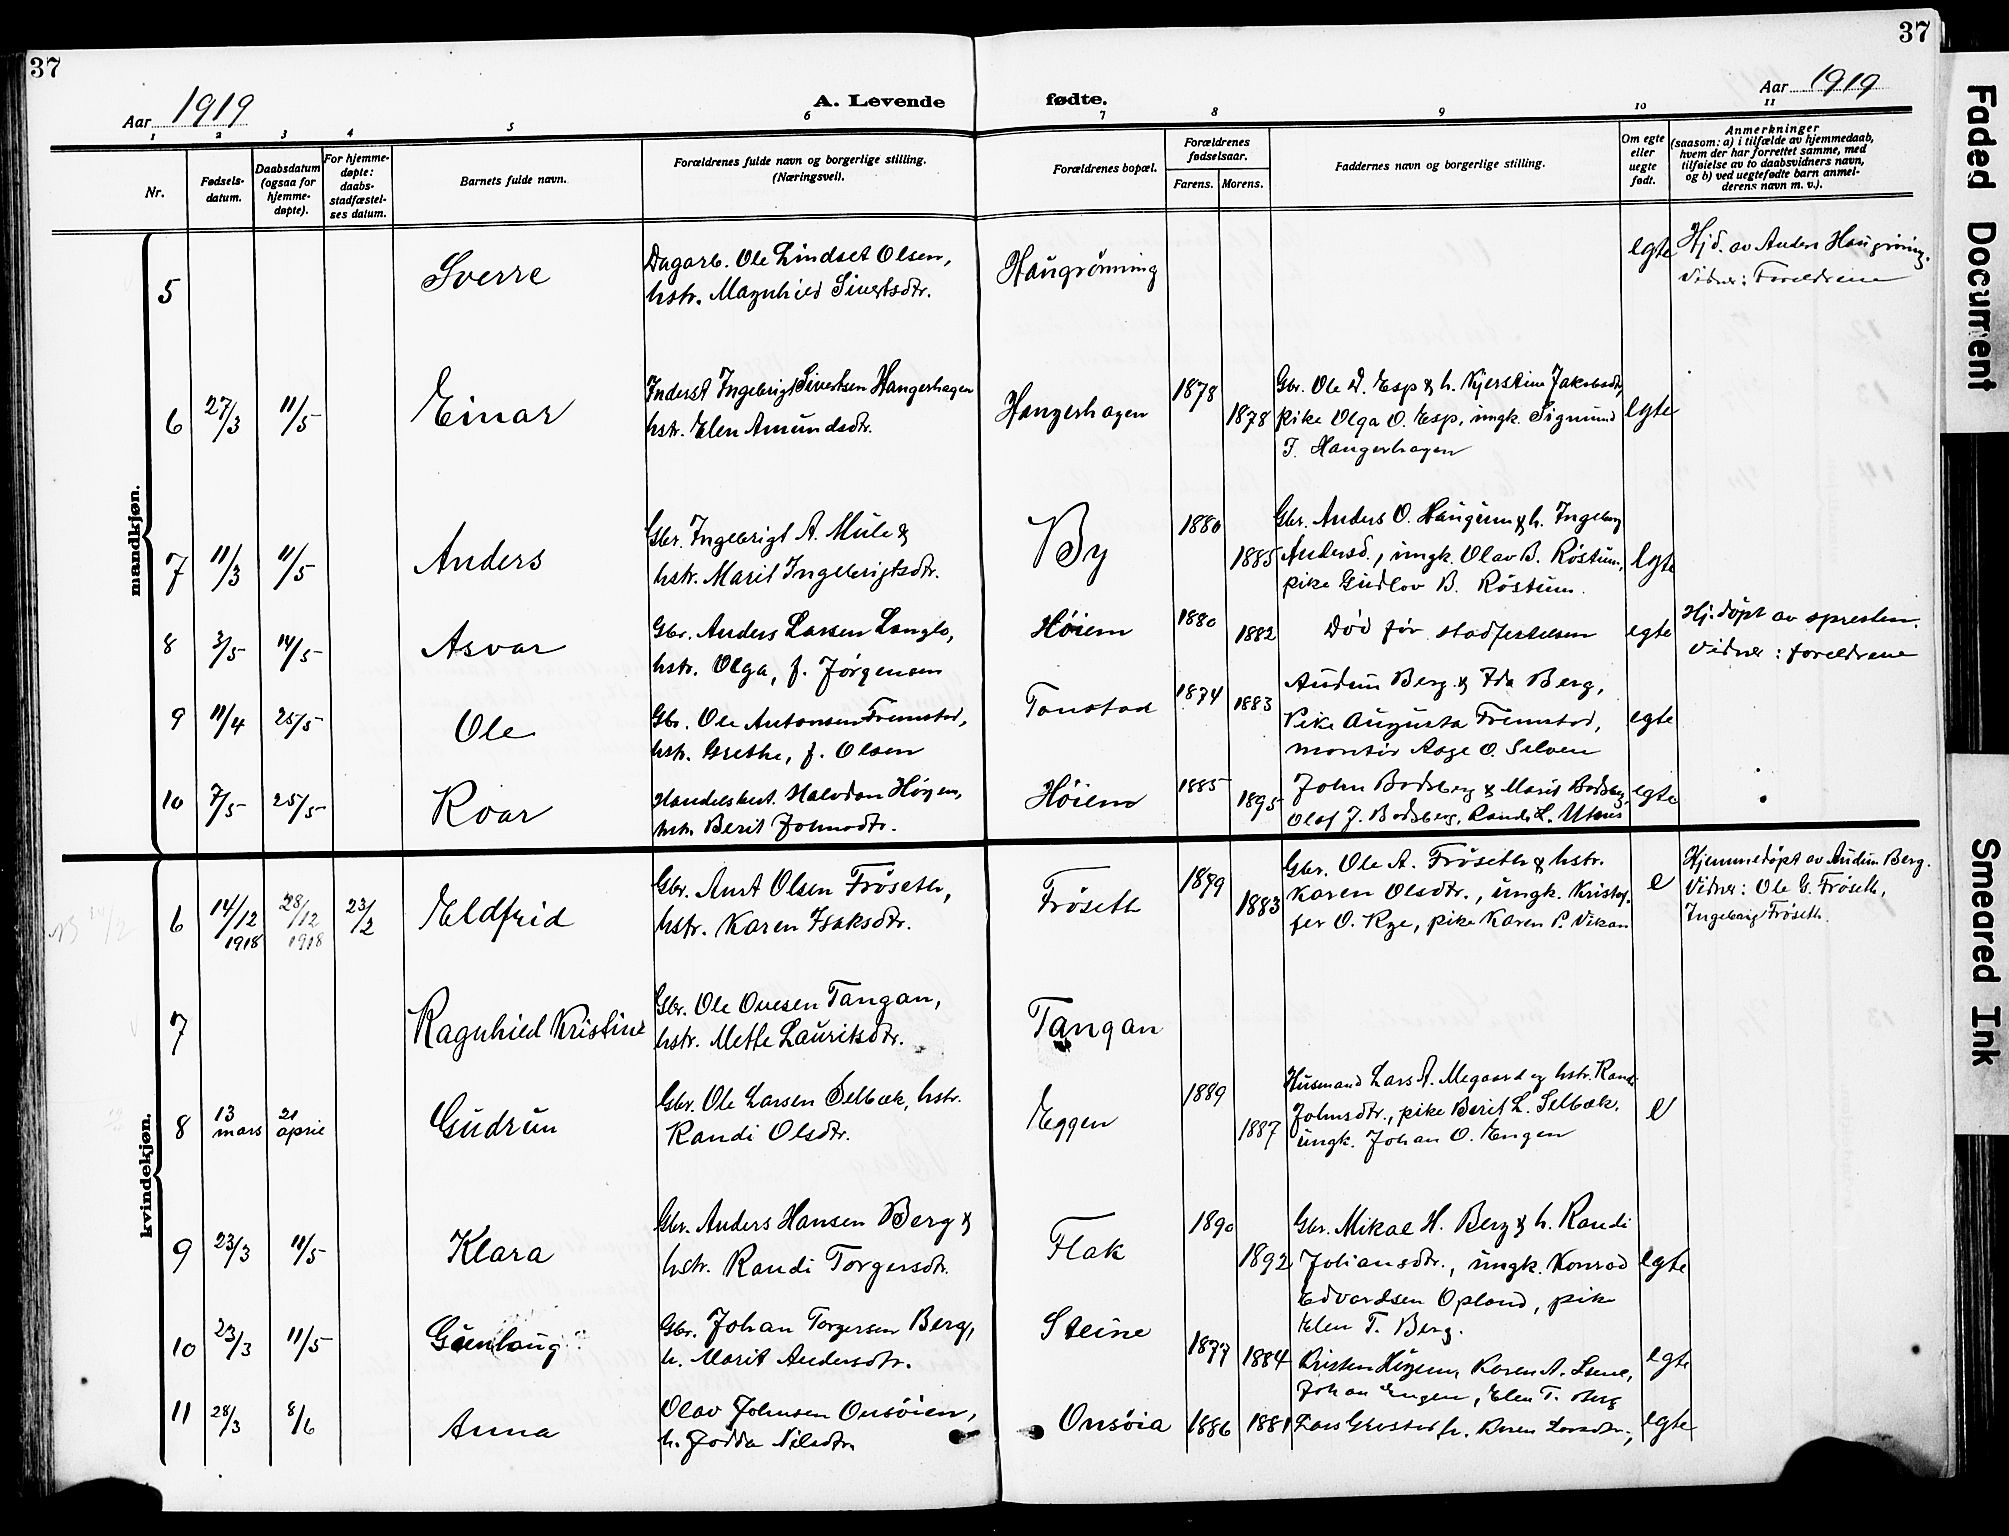 37
37
Aar 1919
A. Levende fødte.
Aar 1919
1 2 3 4 5 6 7 8 9 10 11
Nr.
Fødsels-
datum.
Daabsdatum
(ogsaa for
hjemme-
døpte).
For hjemme-
døpte:
daabs-
stadfæstel-
ses datum.
Barnets fulde navn.
Forældrenes fulde navn og borgerlige stilling.
(Næringsvei).
Forældrenes bopæl.
Forældrenes
fødselsaar.
Farens. Morens.
Faddernes navn og borgerlige stilling.
Om egte
eller
uegte
født.
Anmerkninger
(saasom: a) i tilfælde av hjemmedaab,
hvem der har forrettet samme, med
tilføielse av to daabsvidners navn,
og b) ved uegtefødte barn anmel-
derens navn m. v.).
mandkjøn.
5 Sverre
Dagarb. Ole Lindset Olsen,
hstr. Magnhild Sivertsdtr.
Haugrønning
egte
Hjd. av Anders Haugrønning.
Vidner: Foreldrene
6 27/3 11/5 Einar
Inderst Ingebrigt Sivertsen Hangerhagen
hstr. Elen Amundsdtr.
Hangerhagen
1878
1878
Gbr. Ole D. Esp & h. Kjerstine Jakobsdtr,
pike Olga O. Esp, ungk. Sigmund
I. Hangerhagen
egte
7 11/3 11/5 Anders
Gbr. Ingebrigt A. Mule &
hstr. Marit Ingebrigtsdtr.
By
1880
1885
Gbr. Anders O. Haugum & h. Ingeborg
Andersd., ungk. Olav B. Røstum,
pike Gudlov B. Røstum.
egte
8 3/5 14/5 Asvar
Gbr. Anders Larsen Langlo,
hstr. Olga, f. Jørgensen
Høiem
1880
1882
Død før stadfestelsen
egte
Hj.døpt av spresten.
Vidner: foreldrene
9 11/4 25/5 Ole
Gbr. Ole Antonsen Fremstad,
hstr. Grethe, f. Olsen
Tonstad
1874
1883
Audun Berg & Ida Berg,
Pike Augusta Fremstad,
montør Aage O. Selven
egte
10 7/5 25/5 Roar
Handelsbest. Halvdan Høyem,
hstr. Berit Johnsdtr.
Høiem
1885
1895
John Bodsberg & Marit Bodsberg,
Olaf J. Bodsberg, Randi L. Utnes
egte
kvindekjøn.
6 14/12 1918 28/12 1918 23/2 Eldfrid
Gbr. Arnt Olsen Frøseth,
hstr. Karen Isaksdtr.
Frøseth
1879
1883
Gbr. Ole A. Frøseth & hstr.
Karen Olsdtr., ungk. Kristof-
fer O. Rye, pike Karen P. Vikan
e
Hjemmedøpt av Audun Berg.
Vidner: Ole G. Frøseth,
Ingeborg Frøseth.
7 Ragnhild Kristine
Gbr. Ole Ovesen Tangan,
hstr. Mette Lauritsdtr.
Tangan
8 13 mars 21 april Gudrun
Gbr. Ole Larsen Selbæk, hstr.
Randi Olsdtr.
Eggen
1889
1887
Husmand Lars A. Megaard og hstr. Randi
Johnsdtr., pike Berit L. Selbæk.
ungk. Johan O. Engen
e
9 23/3 11/5 Klara
Gbr. Anders Hansen Berg &
hstr. Randi Torgersdtr.
Flak
1890
1892
Gbr. Mikal H. Berg & h. Randi
Johansdtr., ungk. Konrad
Edvardsen Opland, pike
Elen T. Berg.
egte
10 23/3 11/5 Gunlaug
Gbr. Johan Torgersen Berg,
h. Marit Andersdtr.
Steine
1877
1884
Kristen Høyem, Karen A. Stene,
Johan Engen, Elen T. Berg
egte
11 28/3 8/6 Anna
Olav Johnsen Onsøien,
h. Jødda Nilsdtr.
Onsøia
1886
1881
Lars Grøstad, h. Beret Larsdtr.,
egte
Faded Document
Smeared Ink